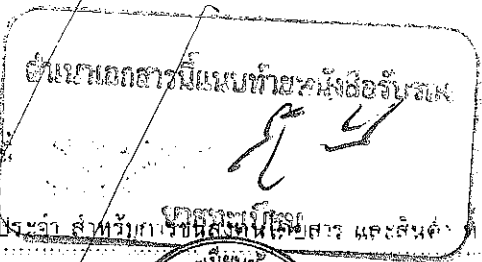 สำเนาเอกสารนี้แนบท้ายหนังสือรับรอง
นายทะเบียน
ประจำ สำหรับการขนส่งคนโดยสาร และสินค้า